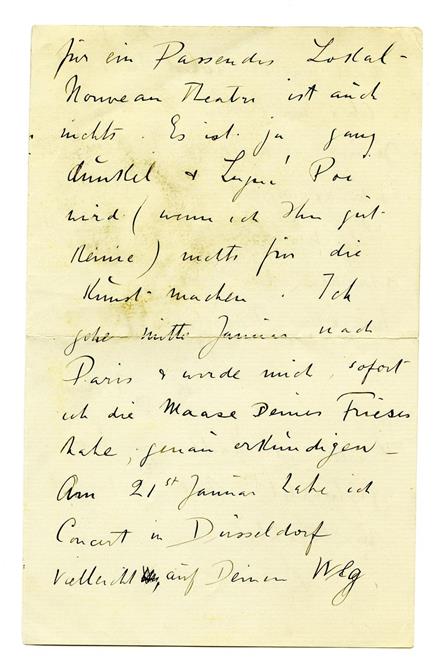 für ein Passendes Lokal-
Nouveau Theatre ist auch
nichts. Es ist ja ganz
dunkel & Lugné Poe
wird (wenn ich Ihn gut
kenne) nichts für die
Kunst machen. Ich
gehe mitte Januar nach
Paris & werde mich, sofort
ich die Maase Deines Frieses
habe, genau erkundigen -
Am 21st Januar habe ich
Concert in Düsseldorf
Vielleicht auf Deinem Weg